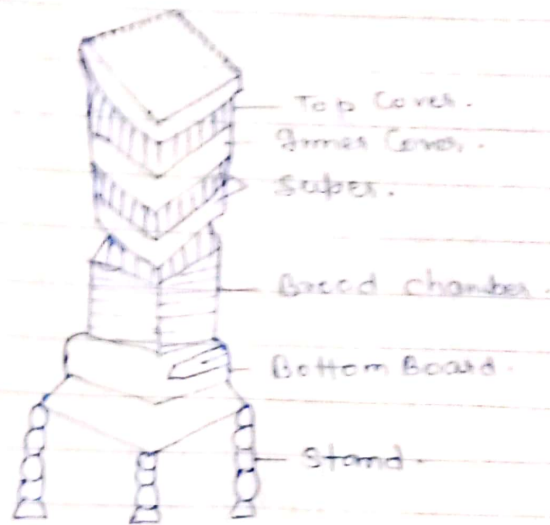 Top Cover.
Inner Cover.
Super.
Brood chamber.
Bottom Board.
Stand.